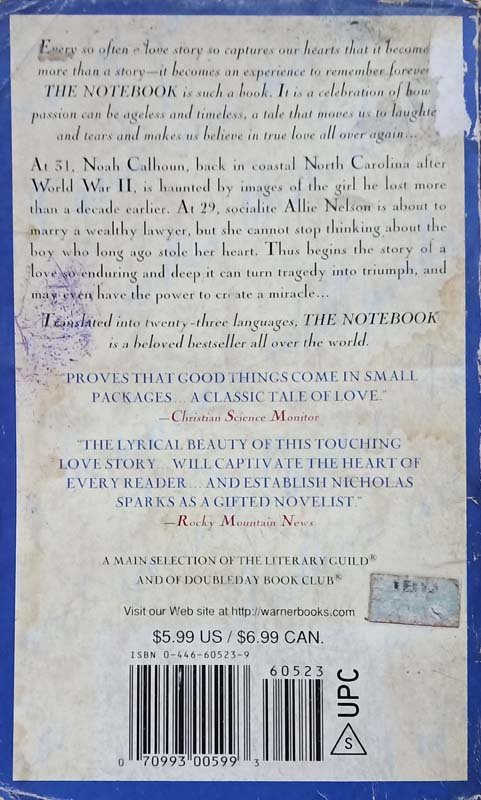 Every so often a love story so captures our hearts that it become
more than a story—it becomes an experience to remember forever
THE NOTEBOOK is such a book. It is a celebration of how
passion can be ageless and timeless, a tale that moves us to laughte
and tears and makes us believe in true love all over again...
At 31, Noah Calhoun, back in coastal North Carolina after
World War II, is haunted by images of the girl he lost more
than a decade earlier. At 29, socialite Allie Nelson is about to
marry a wealthy lawyer, but she cannot stop thinking about the
boy who long ago stole her heart. Thus begins the story of a
love so enduring and deep it can turn tragedy into triumph, and
may even have the power to create a miracle...
Translated into twenty-three languages, THE NOTEBOOK
is a beloved bestseller all over the world.
"PROVES THAT GOOD THINGS COME IN SMALL
PACKAGES...A CLASSIC TALE OF LOVE."
—Christian Science Monitor
"THE LYRICAL BEAUTY OF THIS TOUCHING
LOVE STORY...WILL CAPTIVATE THE HEART OF
EVERY READER...AND ESTABLISH NICHOLAS
SPARKS AS A GIFTED NOVELIST."
—Rocky Mountain News
A MAIN SELECTION OF THE LITERARY GUILD®
AND OF DOUBLEDAY BOOK CLUB®
Visit our Web site at http://warnerbooks.com
$5.99 US / $6.99 CAN.
ISBN 0-446-60523-9
60523
0 70993 00599 3
S UPC